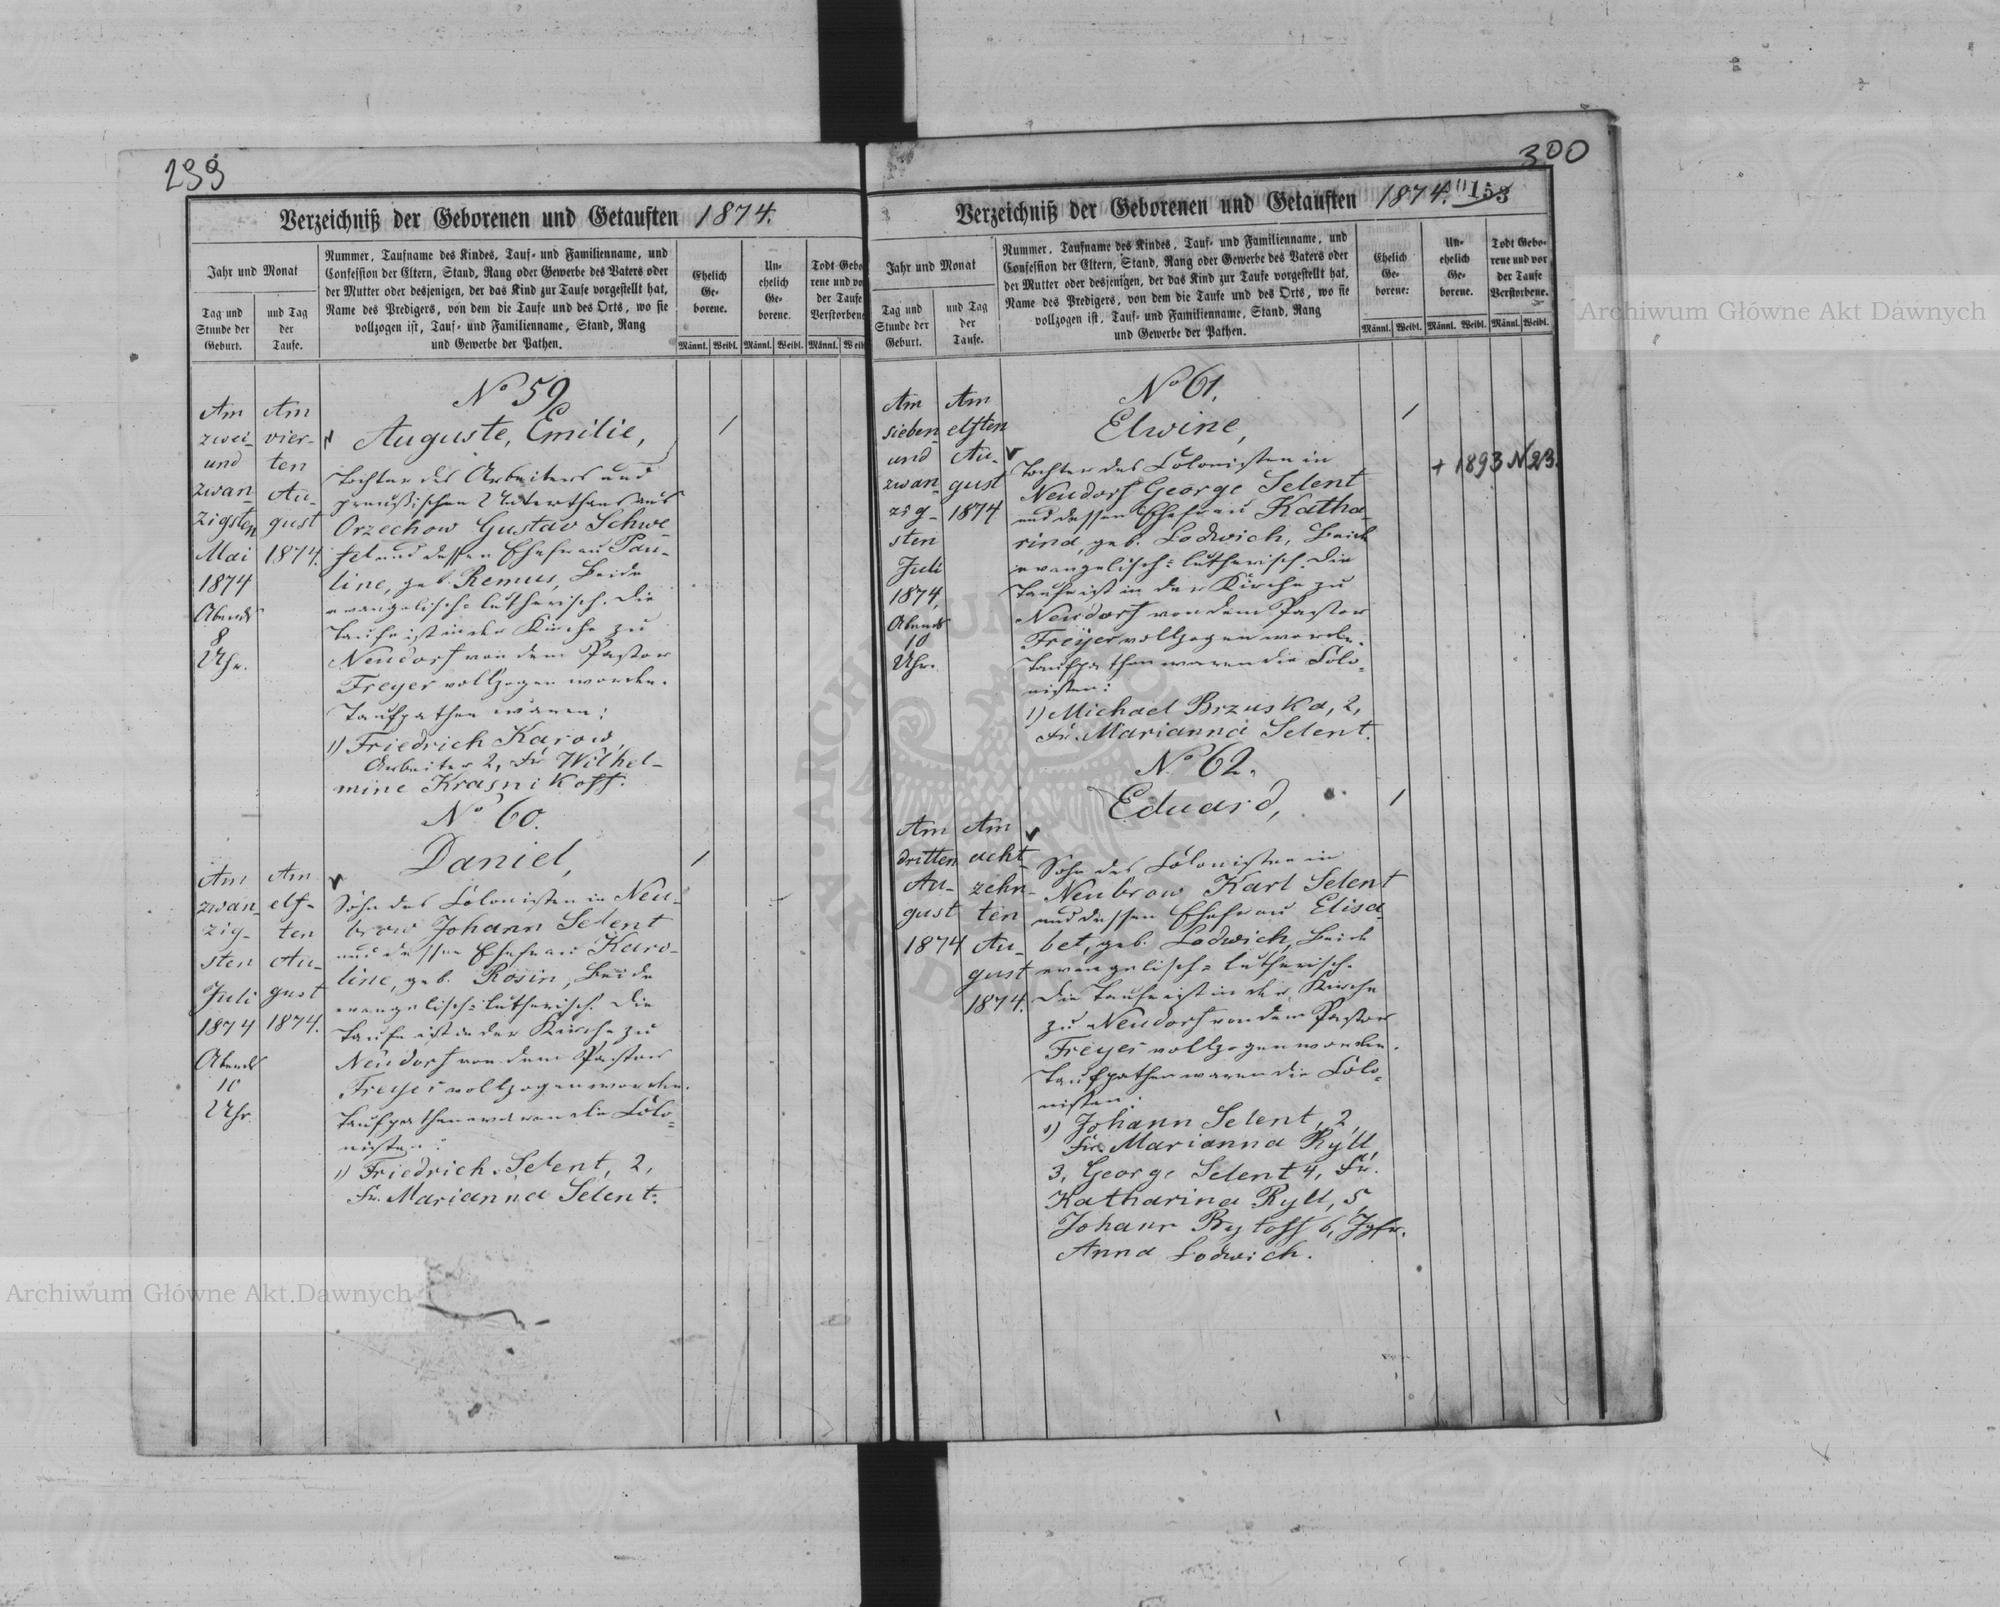 299
Verzeichniß der Geborenen und Getauften 1874.
Jahr und Monat
Tag und Stunde der Geburt.
und Tag der Taufe.
Nummer, Taufname des Kindes, Tauf- und Familienname, und
Confession der Eltern, Stand, Rang oder Gewerbe des Vaters oder
der Mutter oder desjenigen, der das Kind zur Taufe vorgestellt hat,
Name des Predigers, von dem die Taufe und des Orts, wo sie
vollzogen ist, Tauf- und Familienname, Stand, Rang
und Gewerbe der Pathen.
Ehelich Ge- borene.
Un- ehelich Ge- borene.
Todt Gebo rene und vo der Taufe Verstorbene
Männl. Weibl. Männl. Weibl. Männl. Weibl
Am
zwei-
und
zwan-
zigsten
Mai
1874
Abends
8
Uhr.
Am
vier-
ten
Au-
gust
1874.
No 59
Auguste, Emilie,
Tochter des Arbeiters und
preußischen Unterthans aus
Orzechow Gustav Schwe-
fel und dessen Ehefrau Pau-
line, geb. Remus, Beide
evangelisch-lutherisch. Die
Taufe ist in der Kirche zu
Neudorf von dem Pastor
Freyer vollzogen worden.
Taufpathen waren:
1) Friedrich Karow,
Arbeiter 2, Fr. Wilhel-
mine Krasnikoff.
Am
zwan-
zig-
sten
Juli
1874
Abends
10
Uhr
Am
elf-
ten
Au-
gust
1874.
No 60.
Daniel,
Sohn des Colonisten in Neu-
brow Johann Selent
und dessen Ehefrau Karo-
line, geb. Rosin, Beide
evangelisch-lutherisch. Die
Taufe ist in der Kirche zu
Neudorf von dem Pastor
Freyer vollzogen worden.
Taufpathen waren die Colo-
nisten:
1) Friedrich Selent, 2,
Fr. Marianna Selent.
300
Verzeichniß der Geborenen und Getauften 1874. 153
Jahr und Monat
Tag und Stunde der Geburt.
und Tag der Taufe.
Nummer, Taufname des Kindes, Tauf- und Familienname, und
Confession der Eltern, Stand, Rang oder Gewerbe des Vaters oder
der Mutter oder desjenigen, der das Kind zur Taufe vorgestellt hat,
Name des Predigers, von dem die Taufe und des Orts, wo sie
vollzogen ist, Tauf- und Familienname, Stand, Rang
und Gewerbe der Pathen.
Ehelich Ge- borene:
Un- ehelich Ge- borene.
Todt Gebo- rene und vor der Taufe Verstorbene.
Männl. Weibl. Männl. Weibl. Männl. Weibl.
Am
sieben-
und
zwan-
zig-
sten
Juli
1874,
Abends
10
Uhr.
Am
elften
Au-
gust
1874
No 61.
Elwine,
Tochter des Colonisten in
Neudorf George Selent
und dessen Ehefrau Katha-
rina, geb. Lodwich, Beide
evangelisch-lutherisch. Die
Taufe ist in der Kirche zu
Neudorf von dem Pastor
Freyer vollzogen worden.
Taufpathen waren die Colo-
nisten:
1) Michael Brzuska, 2,
Fr. Marianna Selent.
+ 1893 N 23.
Am
dritten
Au-
gust
1874
Am
acht-
zehn-
ten
Au-
gust
1874.
No 62.
Eduard,
Sohn des Colonisten in
Neubrow Karl Selent
und dessen Ehefrau Elisa-
bet, geb. Lodwich, Beide
evangelisch-lutherisch.
Die Taufe ist in der Kirche
zu Neudorf von dem Pastor
Freyer vollzogen worden.
Taufpathen waren die Colo-
nisten:
1) Johann Selent, 2,
Fr. Marianna Ryll,
3, George Selent 4, Fr.
Katharina Ryll, 5,
Johann Rytoff 6, Jgfr.
Anna Lodwich.
Archiwum Główne Akt Dawnych
Archiwum Główne Akt Dawnych